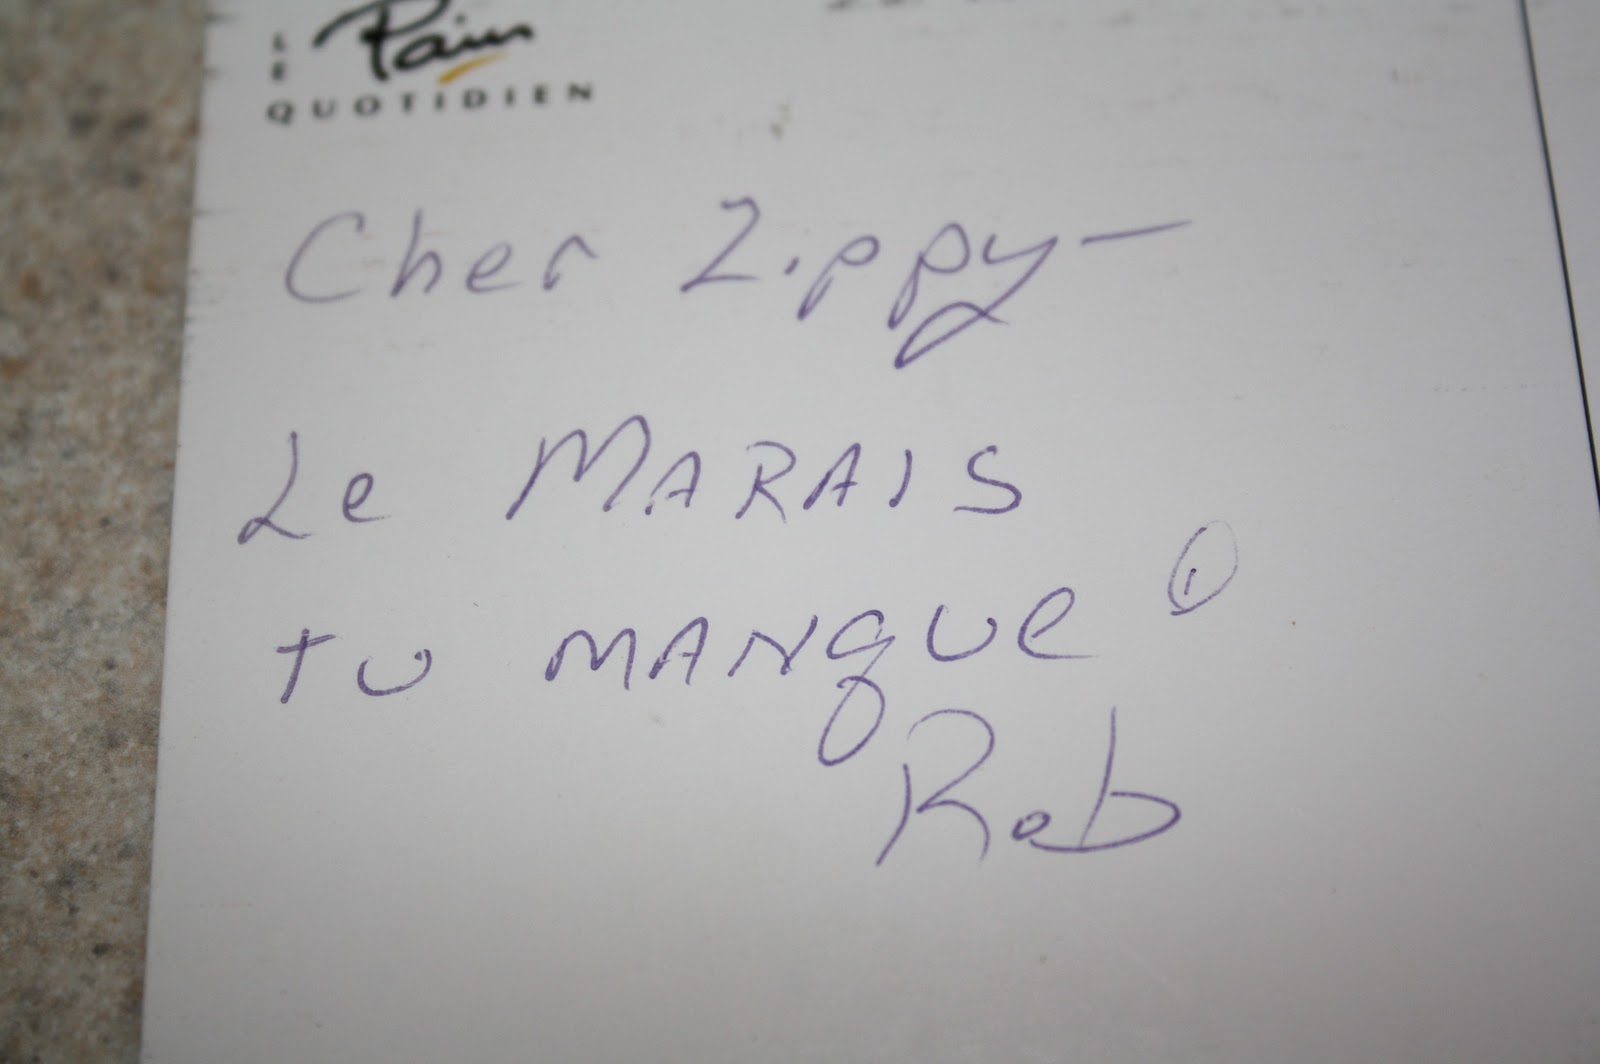 LE Pain
QUOTIDIEN
Cher Zippy—
Le MARAIS
tu MANque ①
Rob